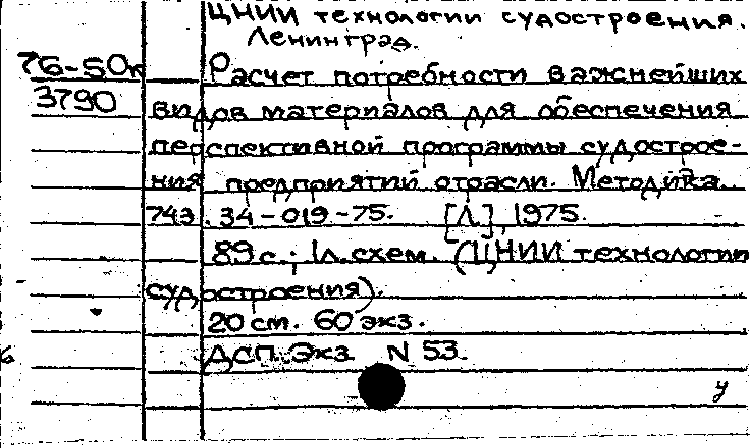 ЦНИИ технологии судостроения.
Ленинград.
76-50к
3790
Расчет потребности важнейших
видов материалов для обеспечения
перспективной программы судострое-
ния предприятий отрасли. Методика.
743. 34-019-75. [Л.], 1975.
89 с.; 1л. схем. (ЦНИИ технологии
судостроения).
20 см. 60 экз.
ДСП. Экз. N 53.
у